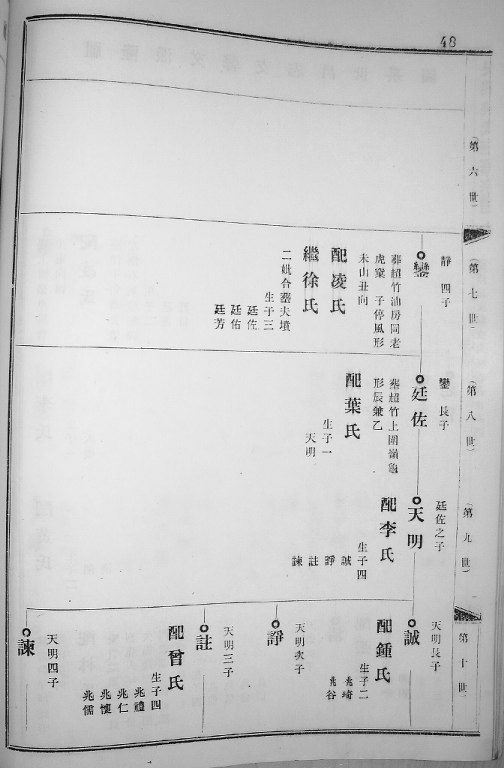 48
（第六世）
（第七世）
靜四子
鑾
葬超竹油房同老
虎窠子停風形
未山丑向
配凌氏
繼徐氏
二妣合塟夫墳
生子三
廷佐
廷佑
廷芳
（第八世）
鑾長子
廷佐
塟超竹上圍嶺龜
形辰兼乙
配葉氏
生子一
天明
（第九世）
廷佐之子
天明
配李氏
生子四
誠
諍
註
諫
（第十世）
天明長子
誠
配鍾氏
生子二
兆琦
兆谷
天明次子
諍
天明三子
註
配曾氏
生子四
兆禮
兆仁
兆懷
兆儒
天明四子
諫